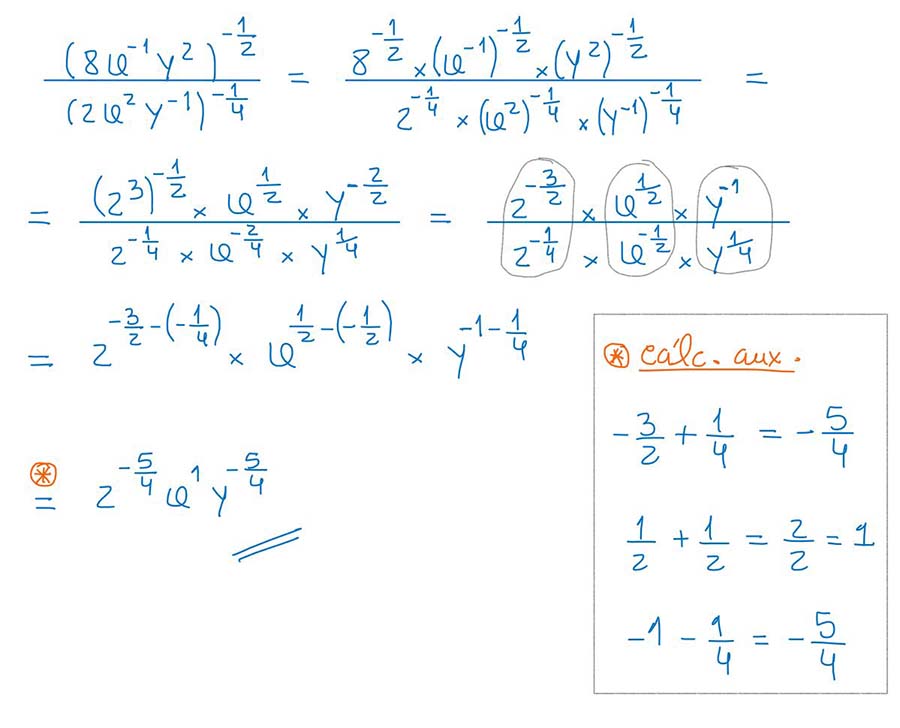 (8u⁻¹y²)^(-1/2) / (2u²y⁻¹)^(-1/4) = 8^(-1/2) × (u⁻¹)^(-1/2) × (y²)^(-1/2) / 2^(-1/4) × (u²)^(-1/4) × (y⁻¹)^(-1/4) =
= (2³)^(-1/2) × u^(1/2) × y^(-2/2) / 2^(-1/4) × u^(-2/4) × y^(1/4) = 2^(-3/2) × u^(1/2) × y⁻¹ / 2^(-1/4) × u^(-1/2) × y^(1/4)
= 2^(-3/2-(-1/4)) × u^(1/2-(-1/2)) × y^(-1-1/4)
⊛ = 2^(-5/4) u¹ y^(-5/4)
⊛ cálc. aux.
-3/2 + 1/4 = -5/4
1/2 + 1/2 = 2/2 = 1
-1 - 1/4 = -5/4